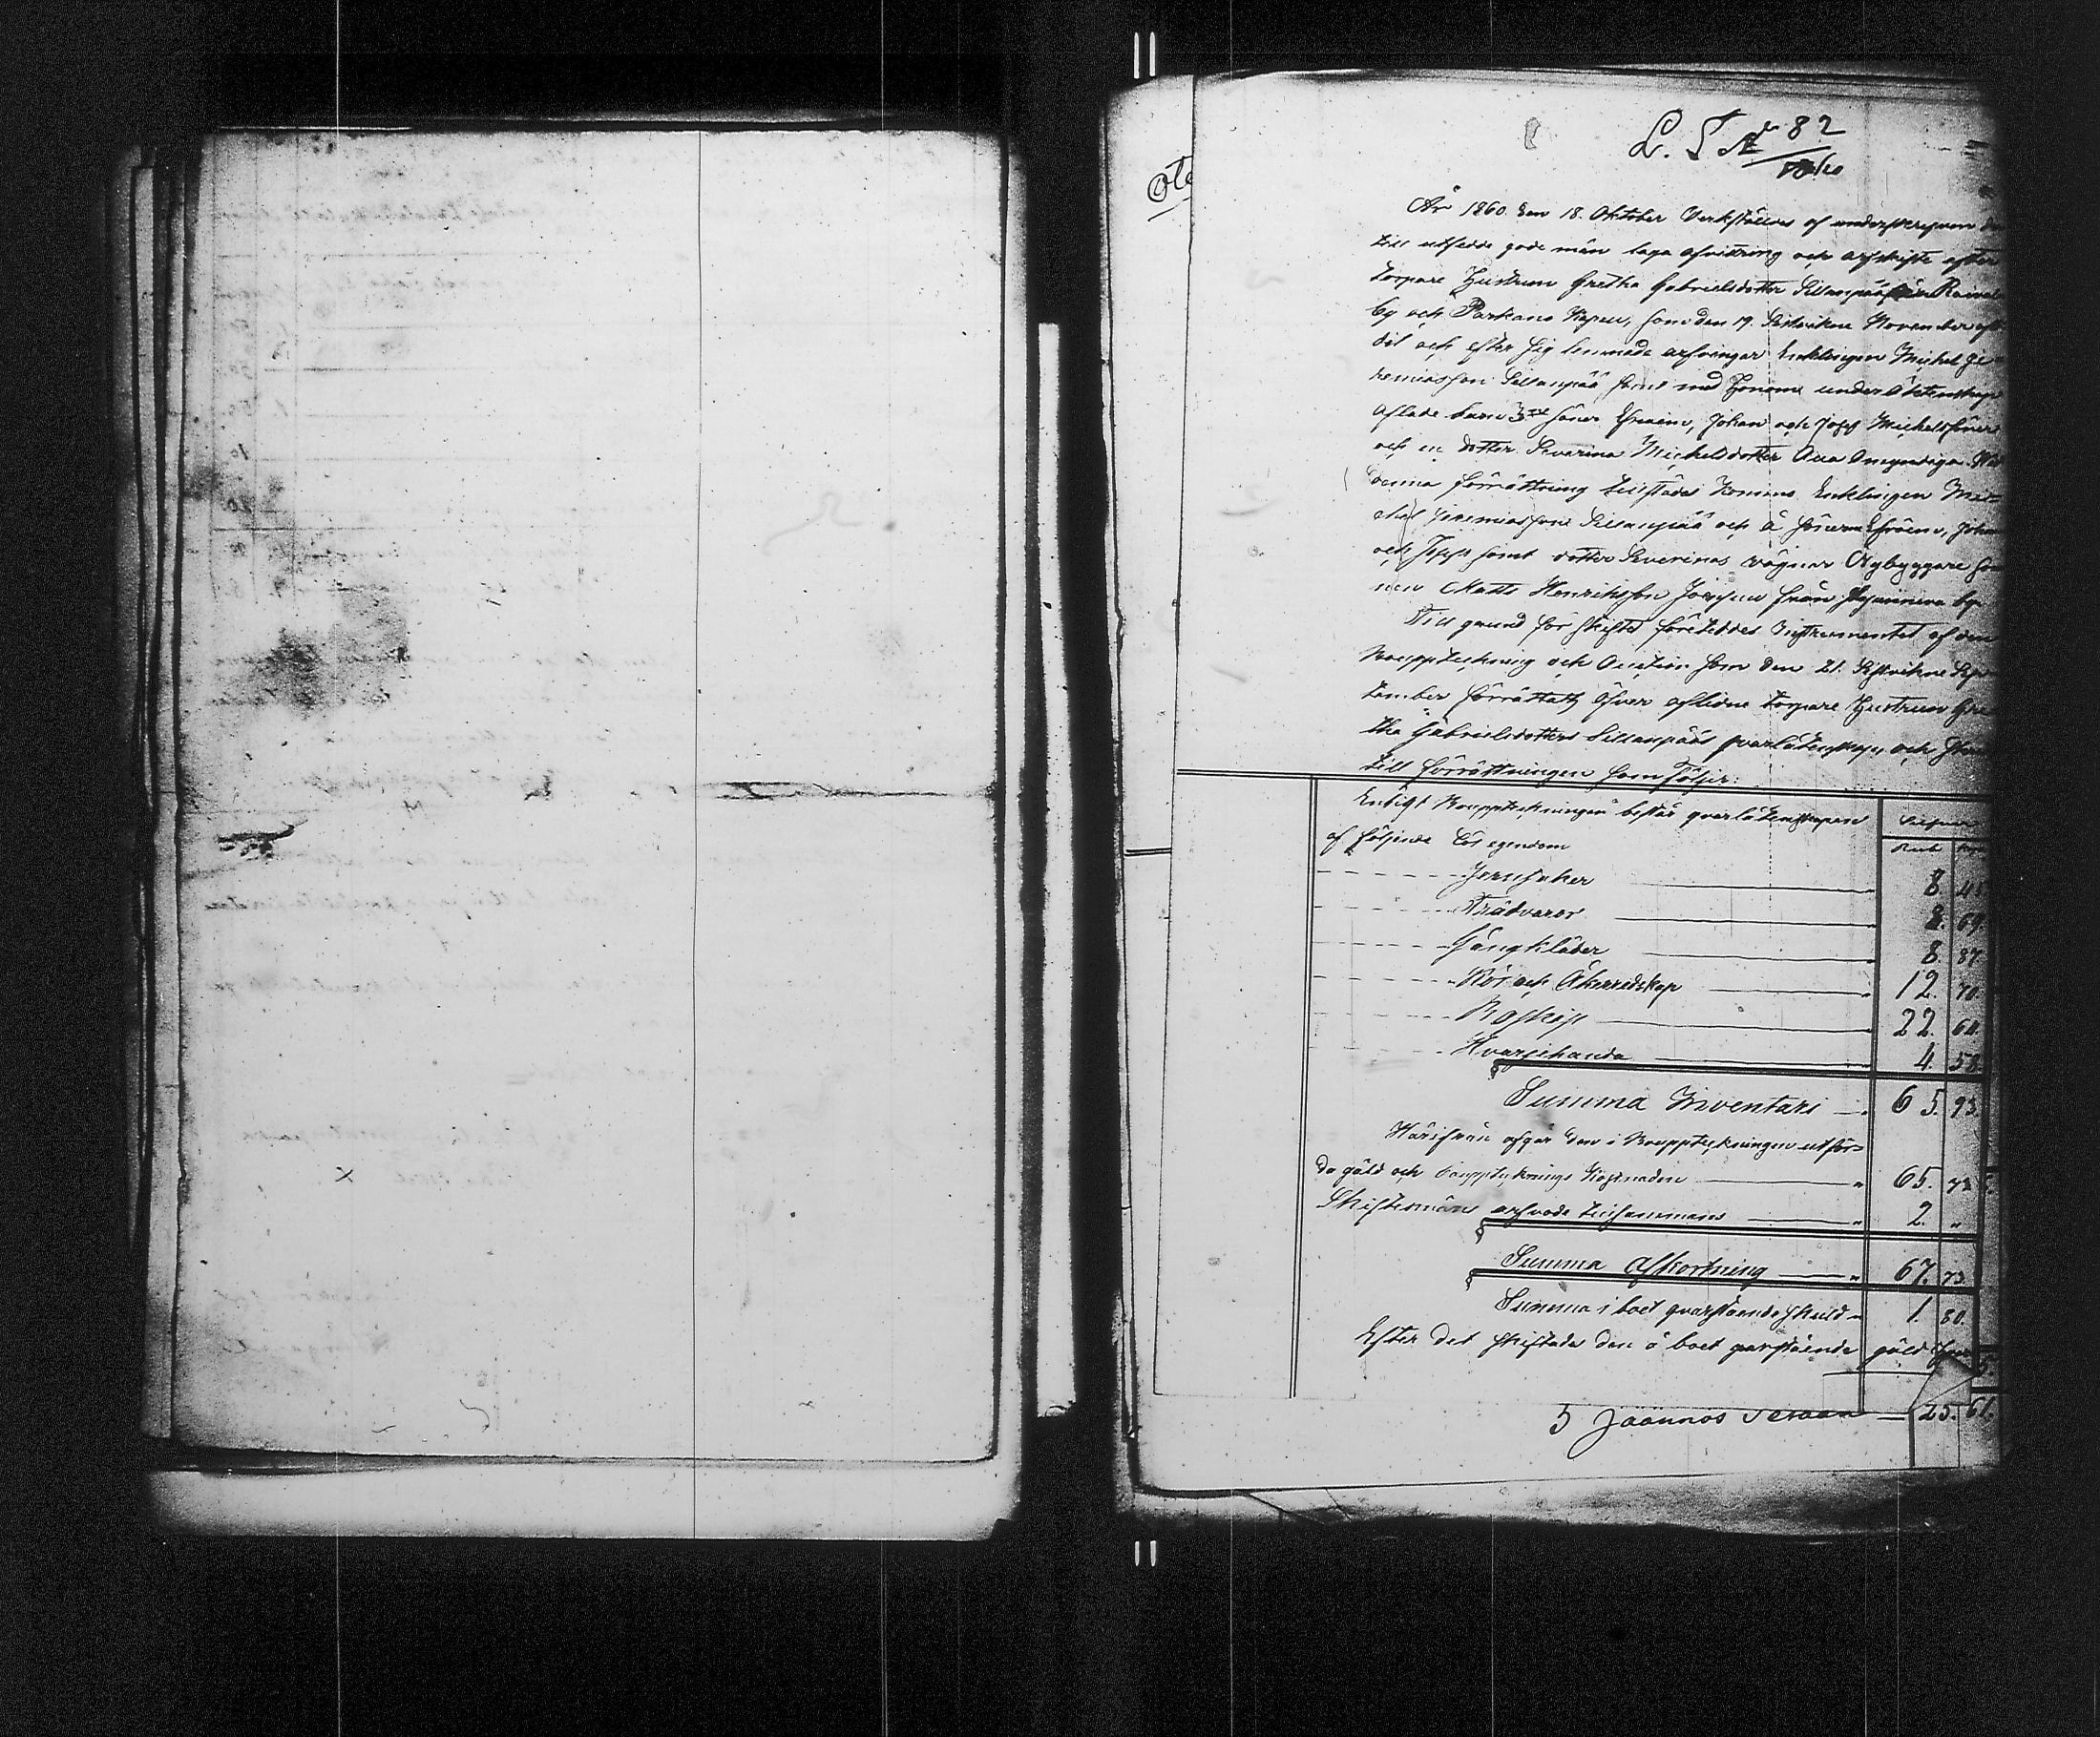 L. T. N° 82
1860
År 1860 den 18. Oktober Verkställdes af underskrefvem
till utsedde gode män laga afvittring och arfskifte efter
torpare Hustrun Gretha Gabrielsdotter Sillanpää från
by och Parkano Kapell, som den 19. November
och efter sig lemnade arfvingar Enklingen Michel Je
remiasson Sillanpää samt med Honom under äktenskap
aflade barn 3ne söner Efraim, Johan och Josef Michelssöner
och en dotter Severina Michelsdotter alla omyndiga. Vid
denna förrättning tillstädes Komme Enklingen Mi
chel Jeremiasson Sillanpää och å sönerne Efraim, Johan
och Josef samt dotter Severinas vägnar Nybyggare so
nen Matts Henriksson från by.
Till grund för skiftet företeddes Instrumentet af den
Bouppteckning och Auction som den 21. Sistvikne Sep
tember förrättatz öfver aflidne torpare Hustrun Gre
tha Gabrielsdotters Sillanpääs qvarlåtenskap, och
till förrättningen som följer:
Enligt Bouppteckningen består qvarlåtenskapen
af följande lös egendom
Rub
Jernsaker 8. 45
Trädvaror 8. 69.
Gångkläder 8 87.
Kör och Åkerredskap 12. 70.
Boskap 22. 64.
Hvarjehanda 4. 58.
Summa Inventari 65. 93.
Härifrån afgår den i Bouppteckningen utför-
da gäld och bouppteknings Kostnaden 65. 73
Skiftesmäns arfvode tillsammans 2. "
Summa Afkortning 67. 73.
Summa i boet qvarstående skuld 1. 80.
Efter det skiftades den å boet qvarstående gäld
25. 61.